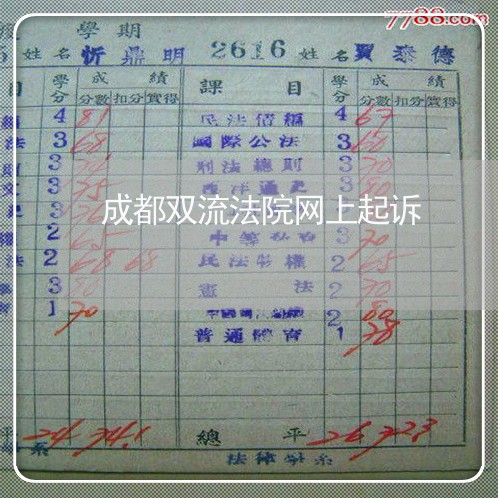 7788.com
學期
姓名 忻鼎明 2616 姓名 賈泰德
目 學分 成績 課目 學分 成績
分數 扣分 實得 分數 扣分 實得
4 81 民法債編 4 67
法 3 68 國際公法 3 60
3 刑法總則 3 70
3 75 西洋通史 3 80
成都双流法院网上起诉
2 65 中等私有 3 70
2 68 68 民法物權 2 65
3 80 憲法 2 70
1 70 2 80
普通體育 1 78
24 74.1 總平 26 72.3
系 法律學系